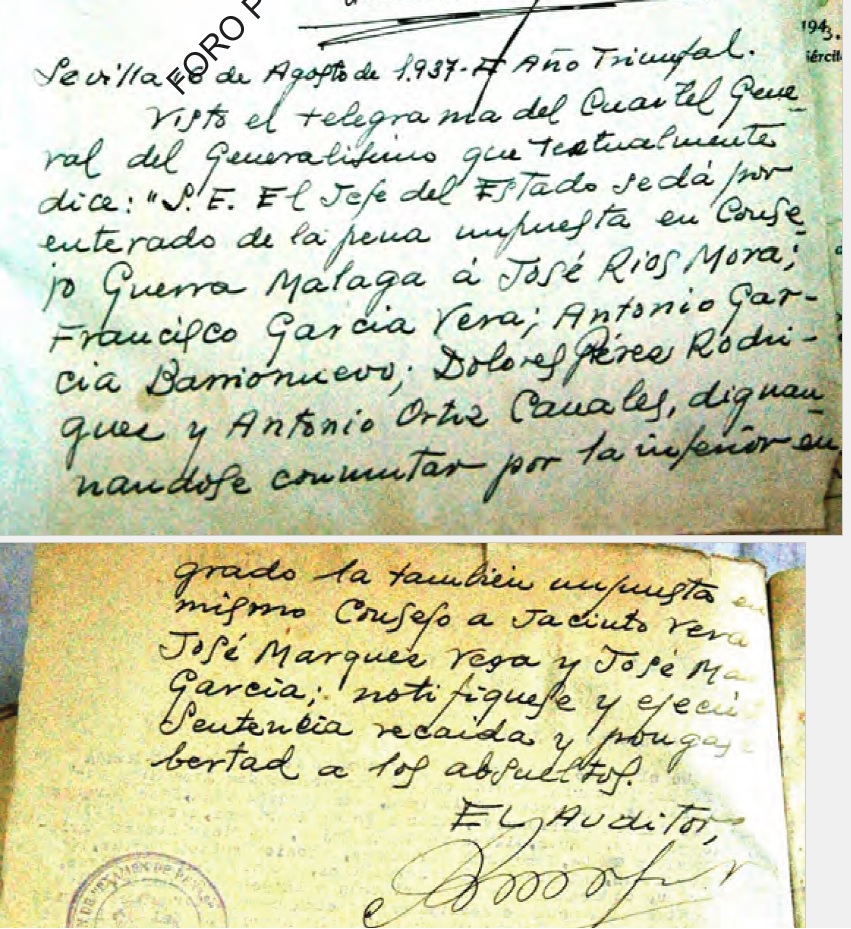 FORO P
1943.
Sevilla 8 de Agosto de 1.937-II Año Triunfal.
Visto el telegrama del Cuartel Gene
ral del Generalisimo que textualmente
dice: "S.E. El Jefe del Estado se dá por
enterado de la pena impuesta en Conse
jo Guerra Malaga á José Rios Mora;
Francisco Garcia Vera; Antonio Gar-
cia Barrionuevo; Dolores Pérez Rodri-
guez y Antonio Ortiz Canales, dignan
nandose conmutar por la inferior en
grado la tambien impuesta en
mismo Consejo a Jacinto Vera
José Marquez Vega y José Ma
Garcia; notifiquese y ejecú
Sentencia recaida y pongase
bertad a los absueltos.
EL Auditor,